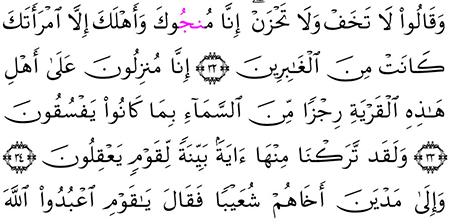 وَقَالُوا۟ لَا تَخَفْ وَلَا تَحْزَنْ ۖ إِنَّا مُنَجُّوكَ وَأَهْلَكَ إِلَّا ٱمْرَأَتَكَ
كَانَتْ مِنَ ٱلْغَـٰبِرِينَ ﴿٣٣﴾ إِنَّا مُنزِلُونَ عَلَىٰٓ أَهْلِ
هَـٰذِهِ ٱلْقَرْيَةِ رِجْزًا مِّنَ ٱلسَّمَآءِ بِمَا كَانُوا۟ يَفْسُقُونَ
﴿٣٣﴾ وَلَقَد تَّرَكْنَا مِنْهَآ ءَايَةًۢ بَيِّنَةً لِّقَوْمٍ يَعْقِلُونَ ﴿٣٤﴾
وَإِلَىٰ مَدْيَنَ أَخَاهُمْ شُعَيْبًا فَقَالَ يَـٰقَوْمِ ٱعْبُدُوا۟ ٱللَّهَ